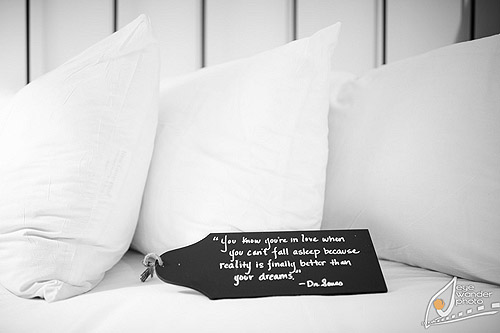 "You know you're in love when
you can't fall asleep because
reality is finally better than
your dreams."
- Dr. Seuss
eye
wander
photo